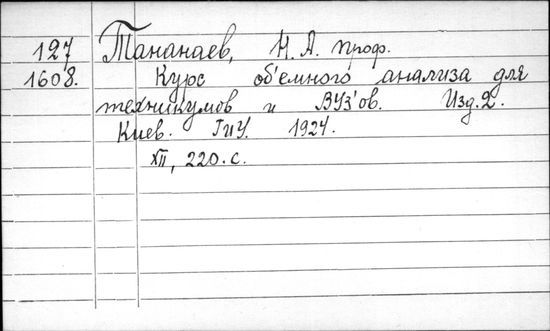 127 Тананаев, Н. А. проф.
1608. Курс об'емного анализа для
техникумов и ВУЗ'ов. Изд. 2.
Киев. ГИУ. 1924.
XII, 220. с.